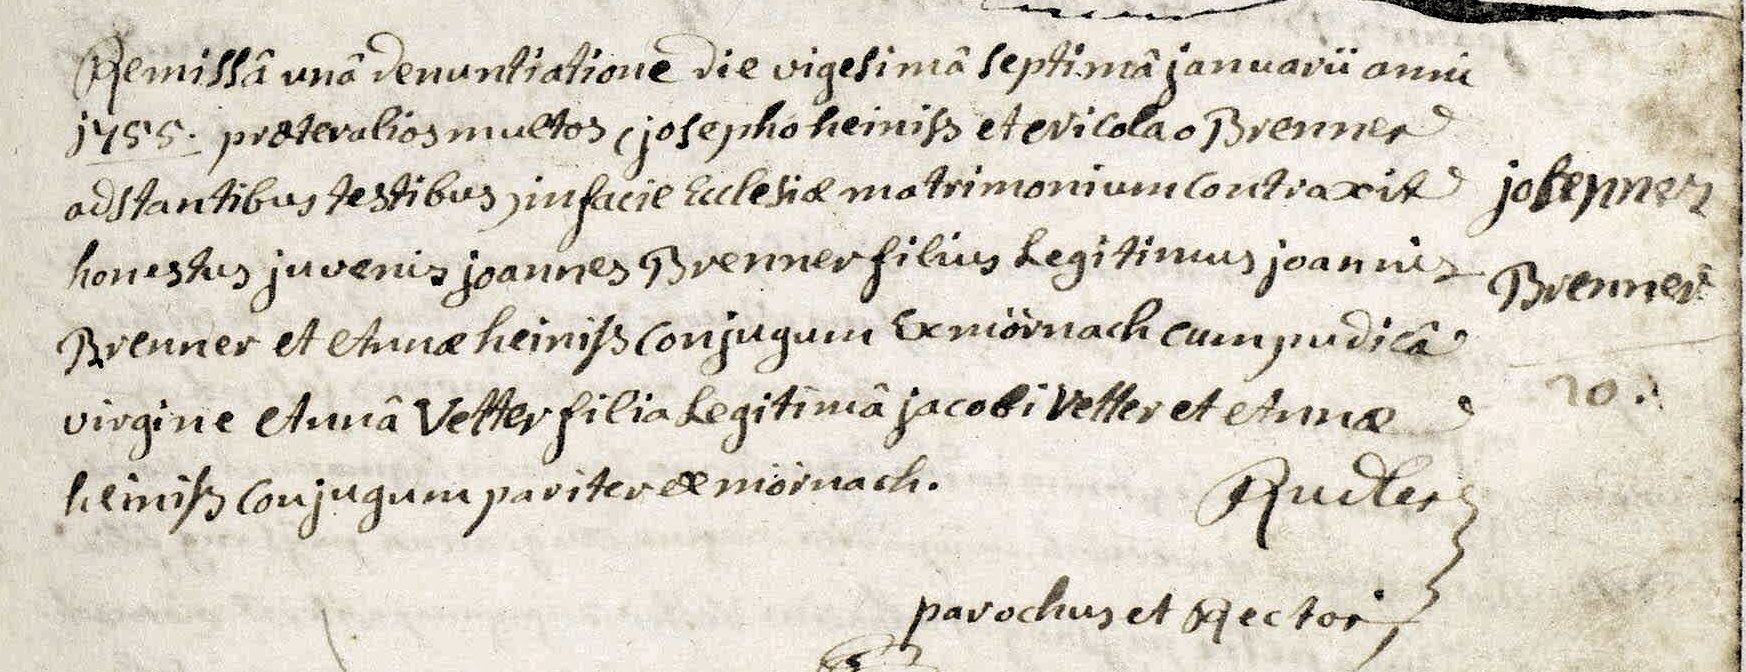 Remissâ unâ denuntiatione die vigesimâ septimâ januarii anni
1755. præter alios multos (josepho heiniss et Nicolao Brenner
adstantibus testibus) in facie Ecclesiæ matrimonium contraxit
honestus juvenis joannes Brenner filius Legitimus joannis
Brenner et Annæ heiniss conjugum Ex mörnach cum pudicâ
virgine Annâ Vetter filia Legitimâ jacobi Vetter et Annæ
heiniss conjugum pariter ex mörnach.
Rudler
parochus et Rector
Brenner
20.